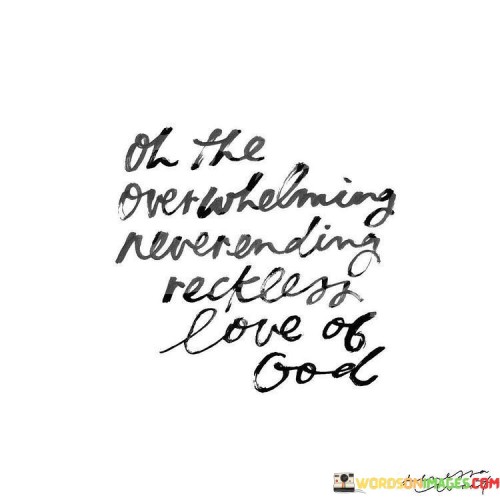 oh the
overwhelming
neverending
reckless
love of
God
WORDSONIMAGES.COM